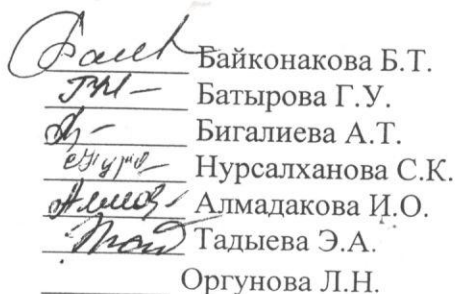 Байконакова Б.Т.
Батырова Г.У.
Бигалиева А.Т.
Нурсалханова С.К.
Алмадакова И.О.
Тадыева Э.А.
Оргунова Л.Н.